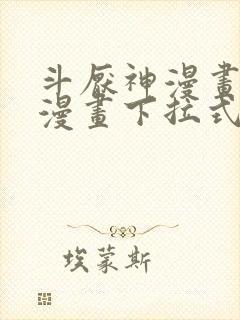 斗厭神漫畫
漫畫下拉式
埃蒙斯